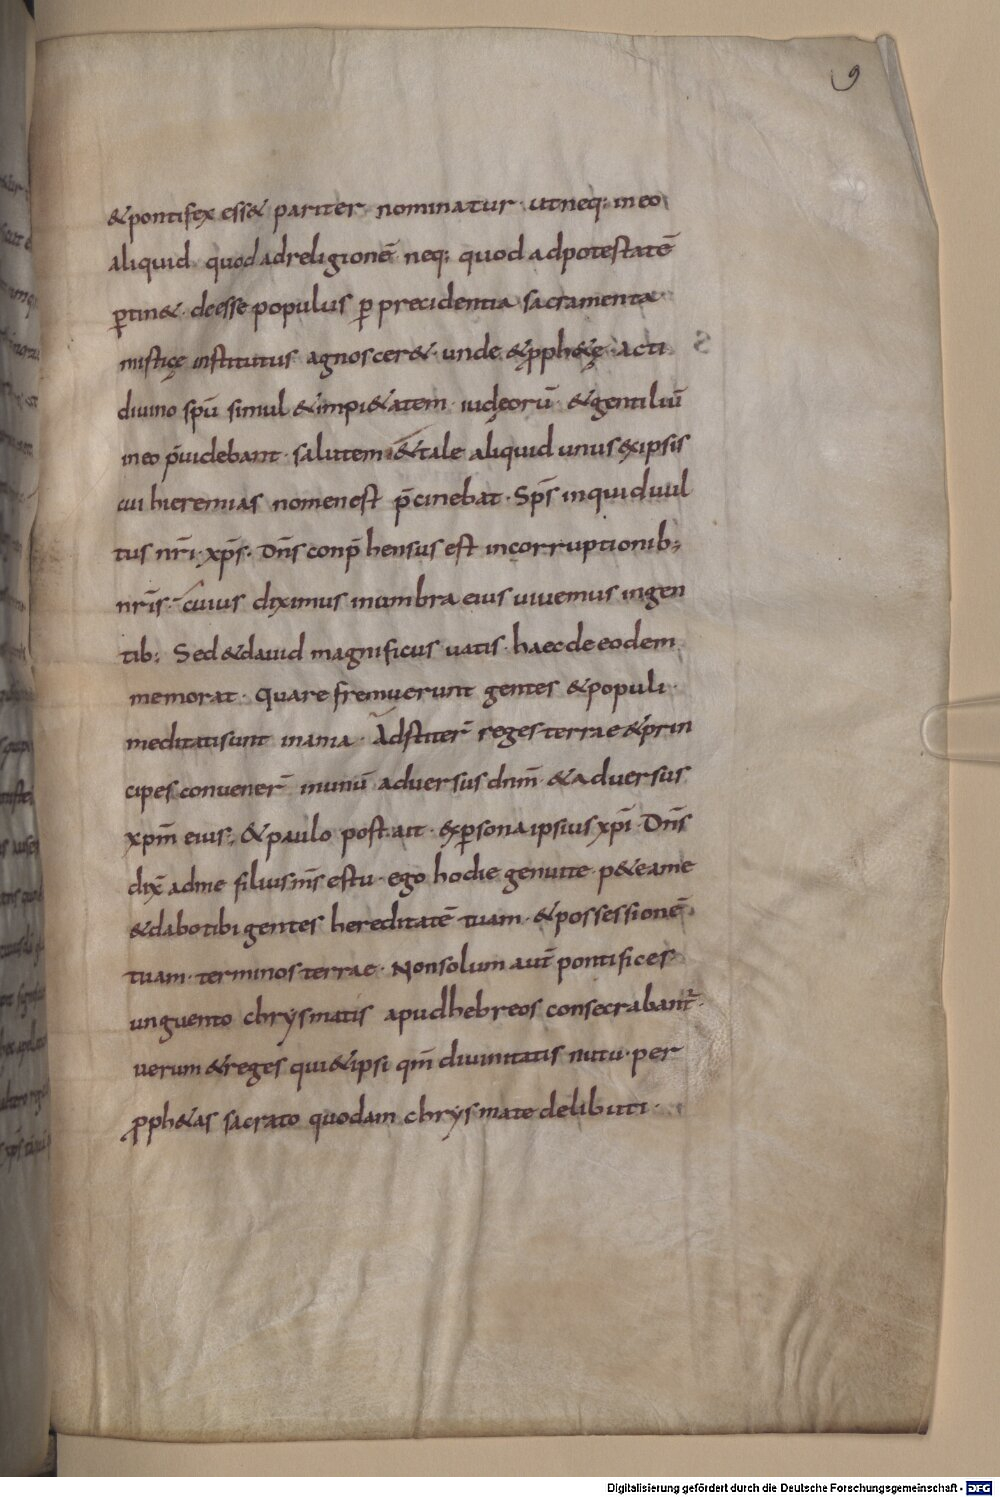 9
&pontifex ess& pariter nominatur · utneq: ineo
aliquid quod adreligionē neq: quod adpotestatē
ꝑtin& · deesse populus ꝑ precidentia sacramenta ·
mistice institutus agnoscer& · unde &ꝓph&ę · acti
diuino spū simul &impi&atem · iudęorū · &gentiliū
ineo p̄uidebant · salutem &tale aliquid unus exipsis
cui hieremias nomenest p̄cinebat · Sps̄ inquid uul
tus nr̄i · xps̄ · dn̄s conp̄hensus est incorruptionib;
nr̄is · cuius diximus inumbra eius uiuemus ingen
tib; Sed &dauid magnificus uatis · haecdeeodem
memorat · Quare fremuerunt gentes &populi ·
meditatisunt inania · Adstiter̄ reges terrae &prin
cipes conuener̄ inunū aduersus dnm̄ · &aduersus
xpm̄ eius; &paulo post ait · exꝑsona ipsius xpī · Dn̄s
dix̄ adme filius ms̄ estu · ego hodie genuite · p&eame
&dabo tibi gentes hereditatē tuam · &possessionē
tuam · terminos terrae · Nonsolum aut̄ pontifices ·
unguento chrysmatis apudhebreos consecrabant̄ ·
uerum &reges qui&ipsi qm̄ diuinitatis nutu · per
ꝓph&as sacrato quodam chrysmate delibuti ·
Digitalisierung gefördert durch die Deutsche Forschungsgemeinschaft - DFG